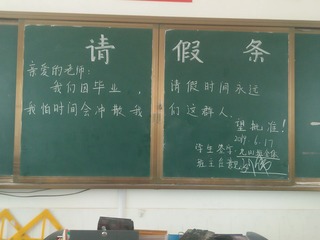 请假条
亲爱的老师：
我们因毕业，请假时间永远
我怕时间会冲散我们这群人。
望批准！
2019.6.17
学生签字：
班主任